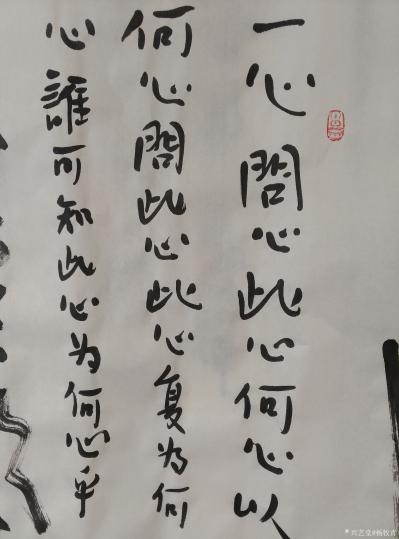 一心問心此心何心以
何心問此心此心复为何
心誰可知此心为何心乎
兴艺堂@杨牧青